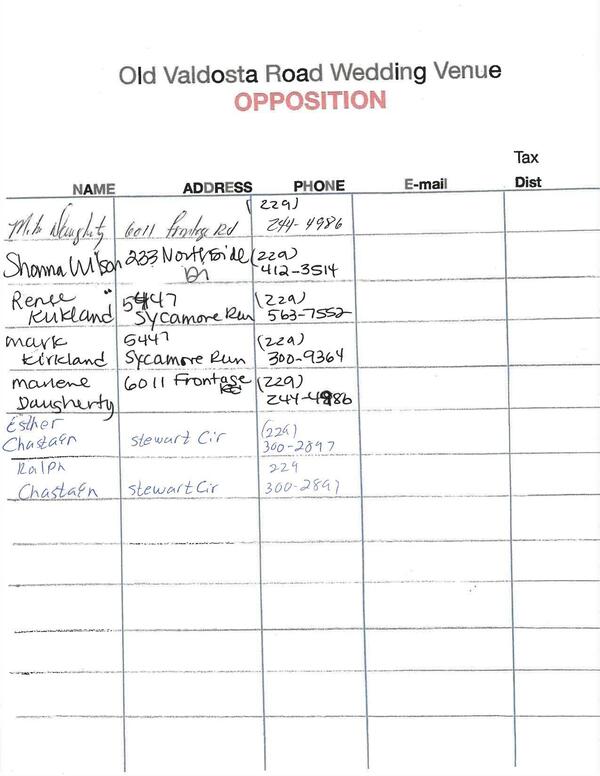 Old Valdosta Road Wedding Venue
OPPOSITION
Tax
NAME ADDRESS PHONE E-mail Dist
(229)
Daughtry 6011 Frontage Rd 244-4986
Shonna Wilson 233 Northside (229)
Dr 412-3514
Renee 5447 (229)
Kirkland Sycamore Run 563-7552
mark 5447 (229)
Kirkland Sycamore Run 300-9364
marlene 6011 Frontage (229)
Daugherty Rd 244-4986
Esther (229)
Chastain stewart Cir 300-2897
Ralph 229
Chastain stewart Cir 300-2897